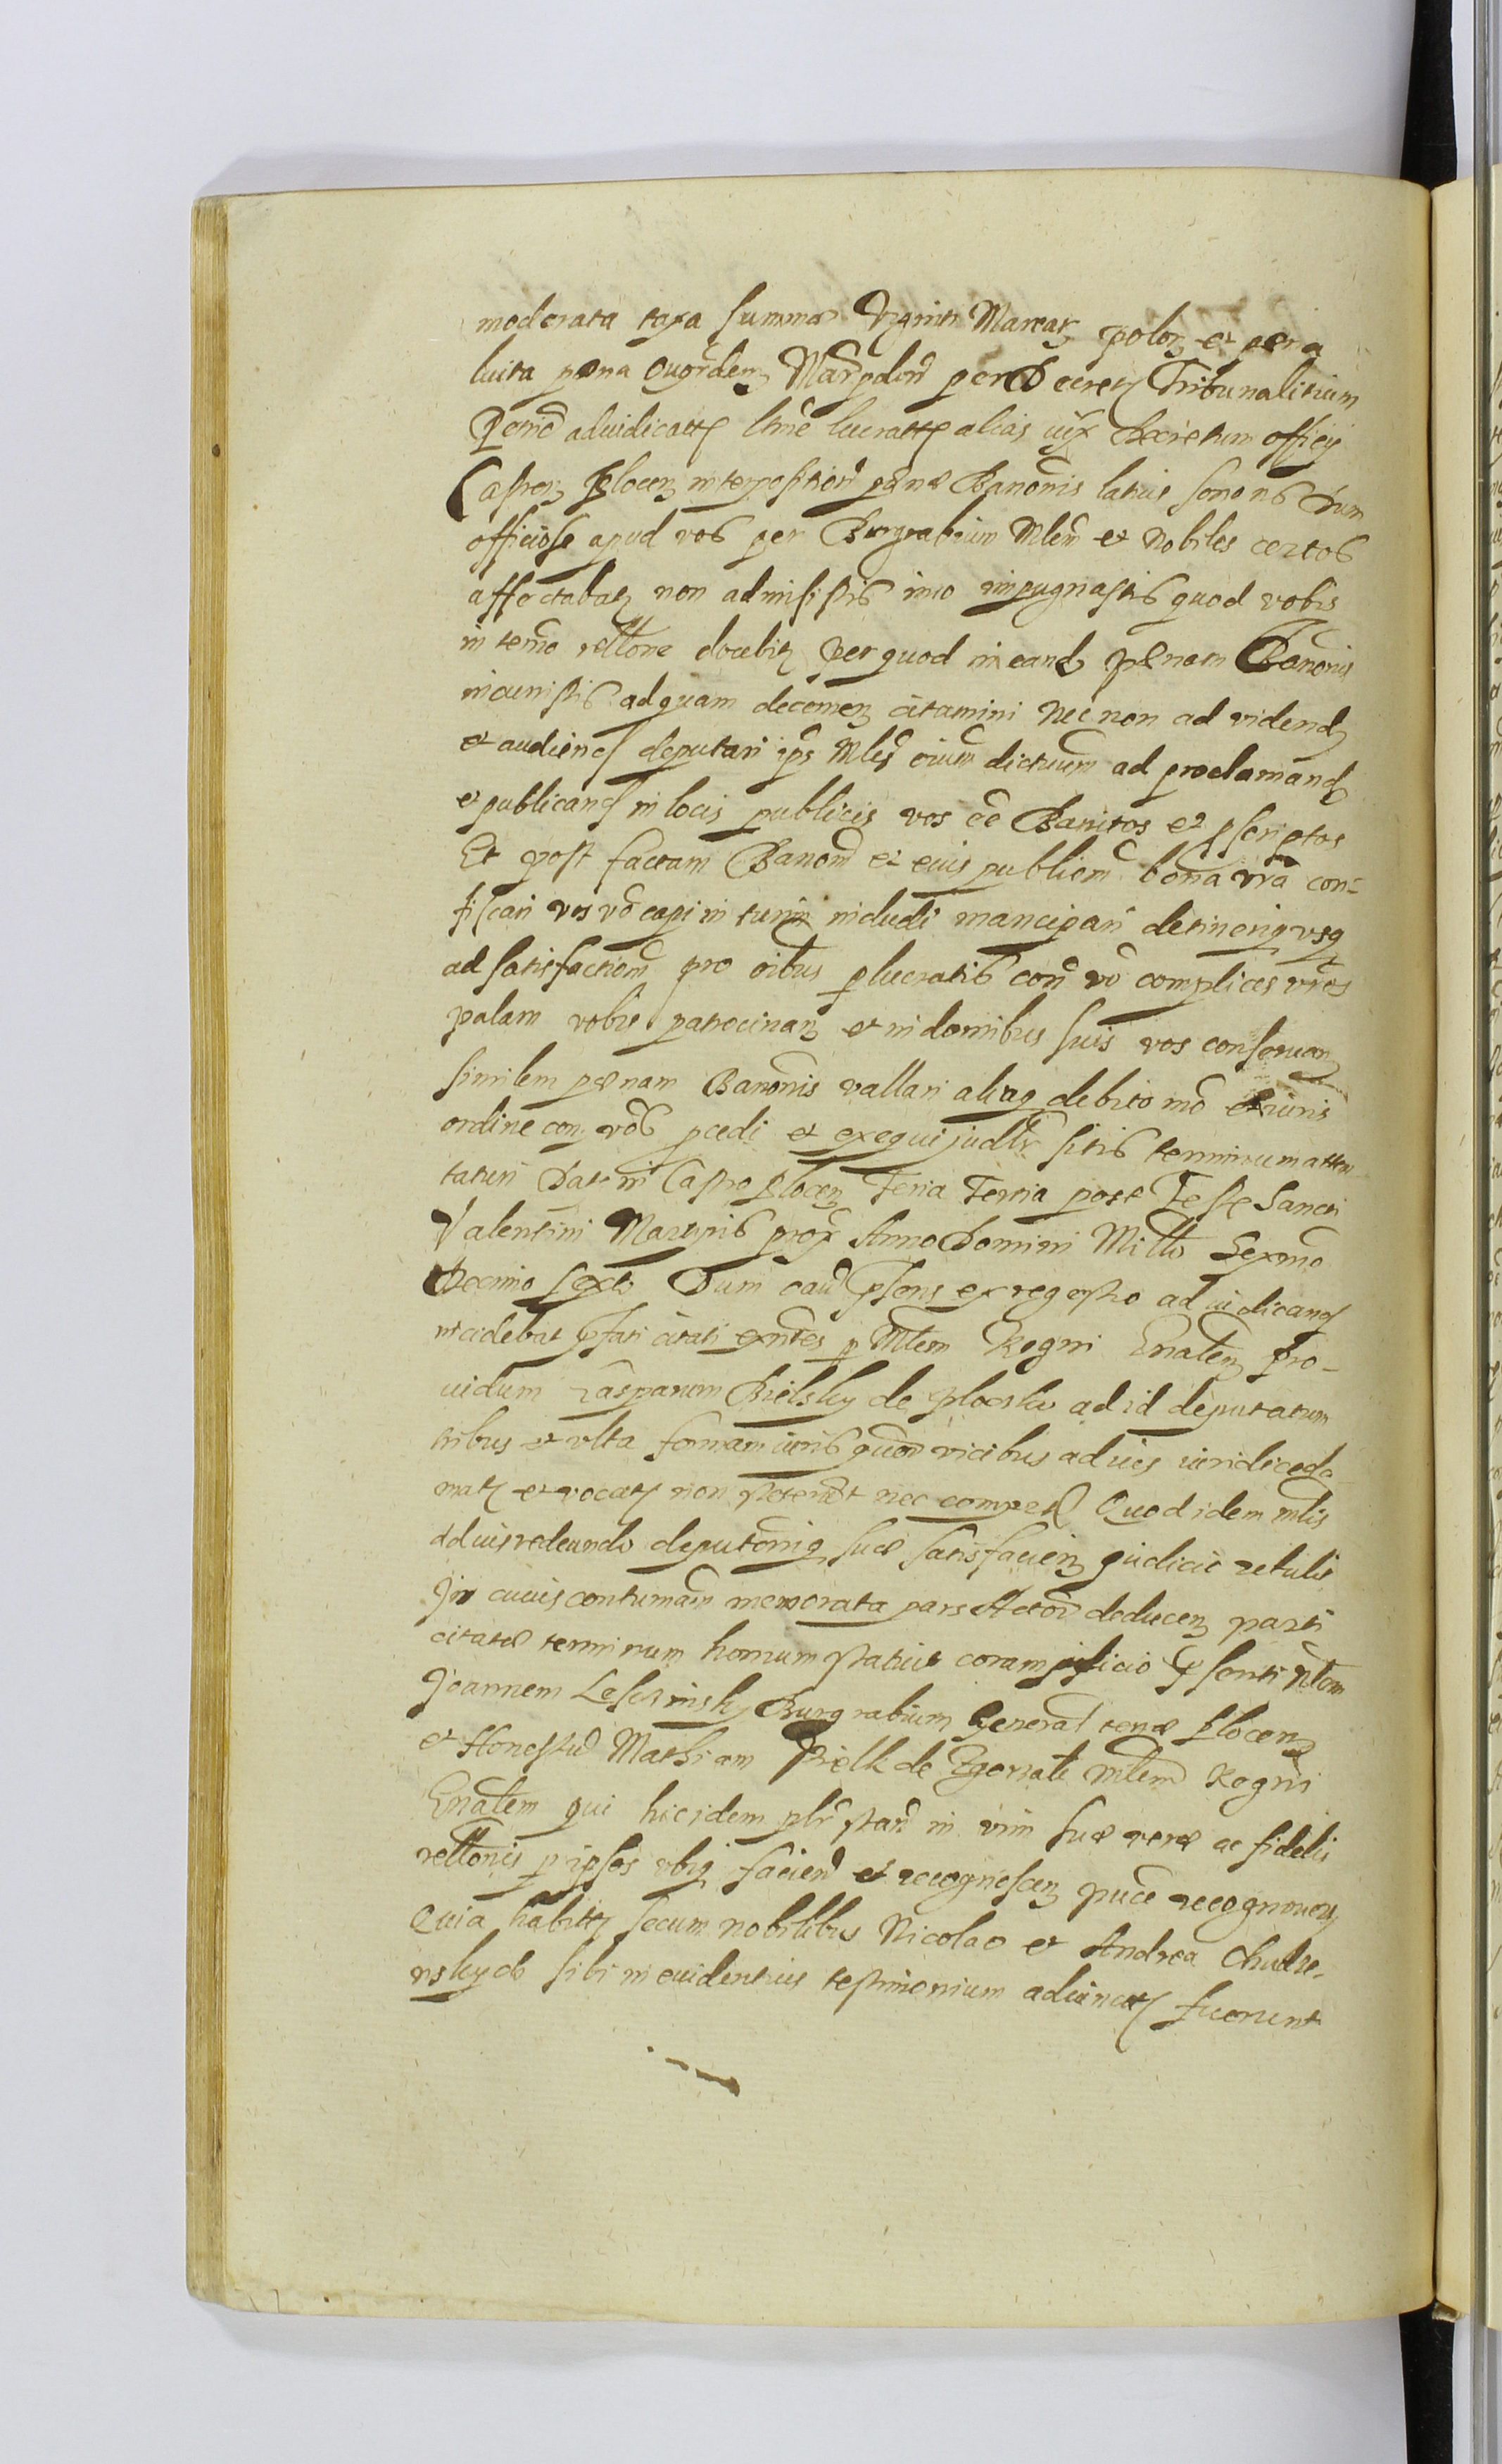 moderata taxa summae Viginti Marcar polon et pera
luita paena Quatrdem Marpolon per Decretum Tribunalitium
adiudicatas lucratas alias iux Decretum officij
Castren Plocen interposition paenae Banonis latius sonans dum
officiose apud vos per Burgrabium Mlem et Nobiles certos
affectabat non admisistis imo impugnastis quod vobis
in termo rellone docebit per quod in eand paenam Banonis
incurristis ad quam decernen citamini Nec non ad vidend
et audiend deputari ips Mles dictuum ad proclamand
et publicand in locis publicis vos ee Banitos et pscriptos
Et post factam Banom et eius publicm bona vra con-
fiscari vos vo capi in turrim includi mancipari detineriq vsq
ad satisfactiom pro oibus plucratis con vo complices vros
palam vobis patrocinan et in domibus suis vos conseruan
similem paenam Banonis vallari aliaq debito mo et iuris
ordine con vos pcedi et exequi judlr sitis terminum atten
taturi Dat in Castro Plocen Feria Tertia post Festa Sancti
Valentini Martyris prox Anno Domini Millo Sexmo
Decimo sexto Dum caū psens ex regestro ad iudicand
incidebat pfati citati exntes p Mlem Regni Gnalem pro-
uidum Casparum Bielsky de Plocko ad id deputatum
tribus et vlta formam iuris quon vicibus ad ius iuridice da
mati et vocati non steterūt nec comper Quod idem mlis
ad ius redeundo deputoniq suae satisfacien judicio retulit
In cuius contumam memorata pars Actor deducen parti
citatae terminum horum statuit coram judicio psenti Nlem
Joannem Lesczinsky Burgrabium General terrae Plocen
et Honestū Mathiam Bielk de Zgorzale Mlem Regni
Gnalem qui hic idem plr stand in vim suae verae ac fidelis
rellonis p ipsos vbiq faciend et recognoscen puce recognouer
Quia habitis secum nobilibus Nicolao et Andrea Chudzi-
nsky ob sibi in euidentius testimonium adiunctis fuerunt